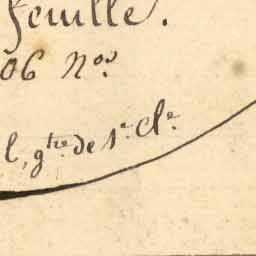 feuille.
06 Nos
l, gtre de 1e Cle